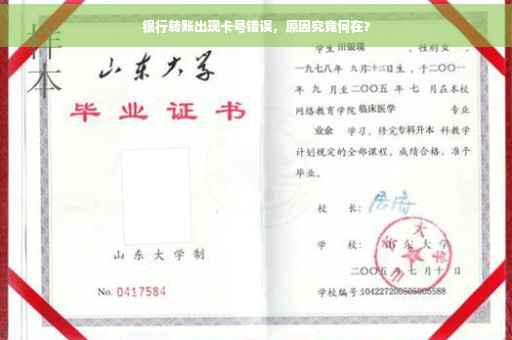 银行转账出现卡号错误，原因究竟何在？
样本
山东大学
毕业证书
山东大学制
No. 0417584
学生 田银瑞 ，性别 女 ，
一九七八年 九月十二日生，于二〇〇一
年 九 月至二〇〇五 年 七 月在本校
网络教育学院 临床医学 专业
业余 学习，修完专科升本 科教学
计划规定的全部课程，成绩合格，准予
毕业。
校 长：
学 校： 山东大学
二〇〇五 年 七 月 十 日
学校编号：104227200505005588